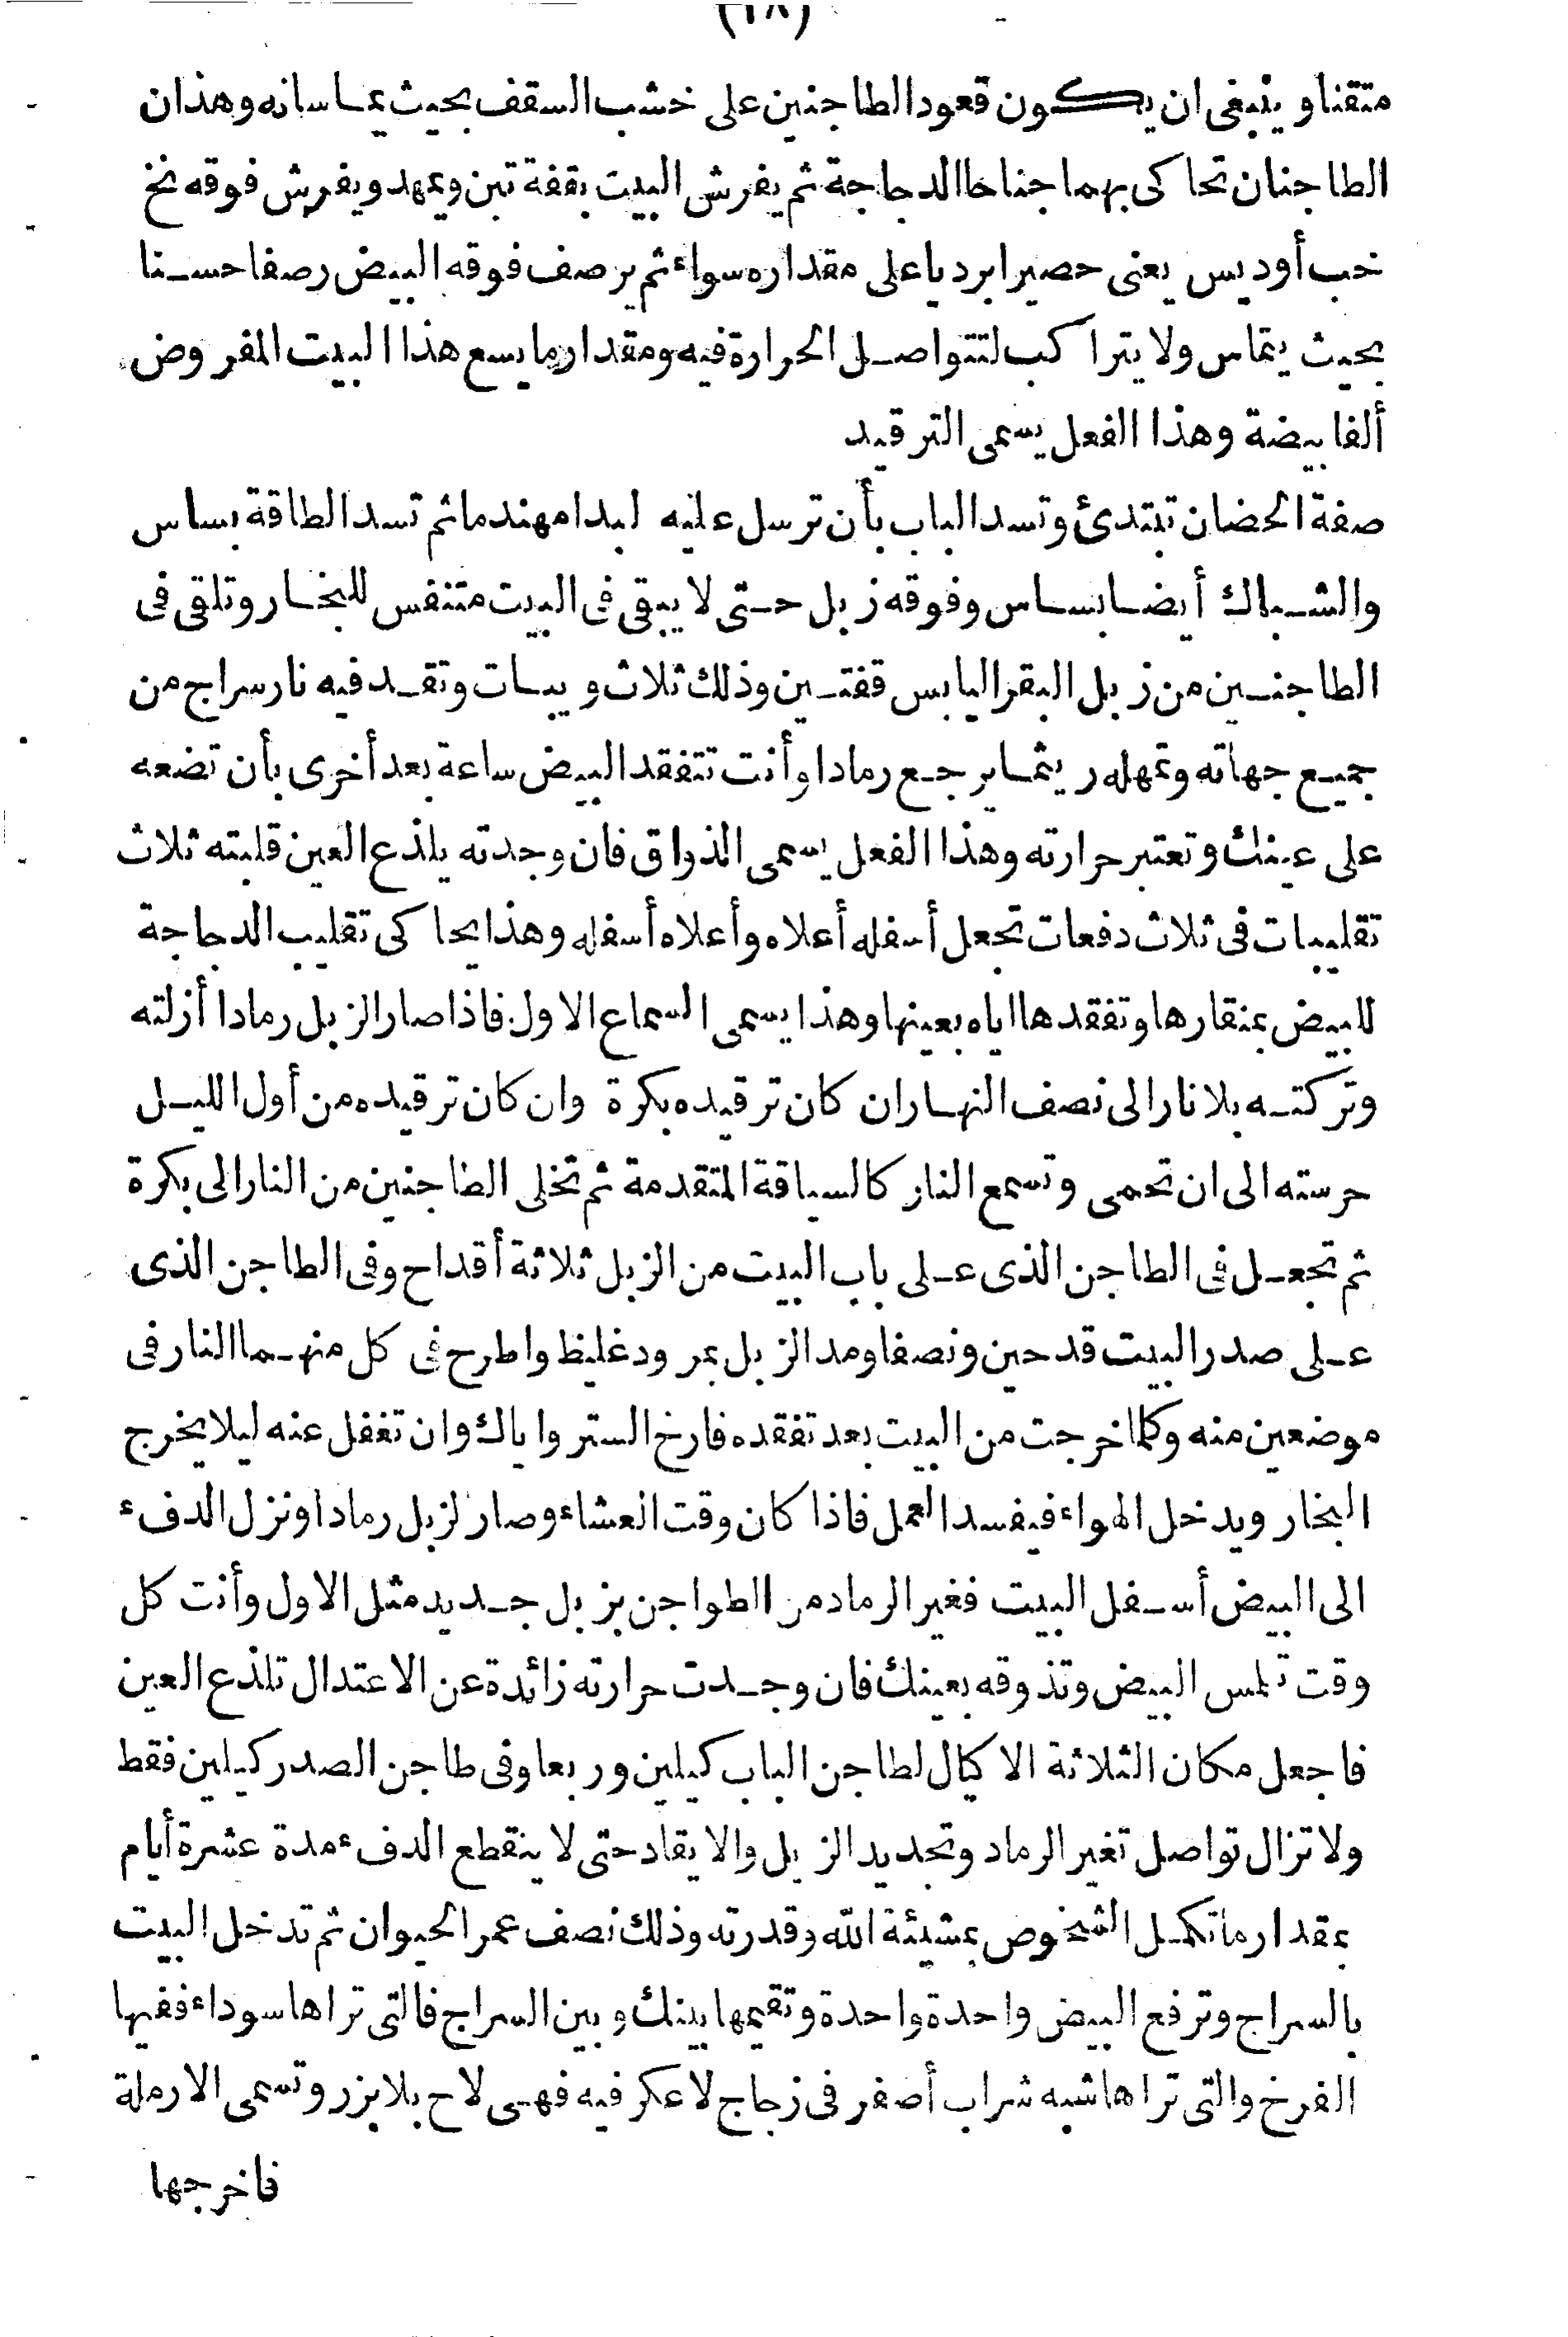 (١٨)
متقنا وينبغى ان يكون قعود الطاجنين على خشب السقف بحيث يماسانه وهذان
الطاجنان تحاكى بهما جناحا الدجاجة ثم يفرش البيت بقفة تبن ويمهد ويفرش فوقه نخ
خب أوديس يعنى حصيرا برديا على مقداره سواء ثم يرصف فوقه البيض رصفا حسنا
بحيث يتماس ولا يتراكب لتتواصل الحرارة فيه ومقدار ما يسع هذا البيت المفروض
ألفا بيضة وهذا الفعل يسمى الترقيد
صفة الحضان تبتدئ وتسد الباب بأن ترسل عليه لبدا مهندما ثم تسد الطاقة بساس
والشباك أيضا بساس وفوقه زبل حتى لا يبقى فى البيت متنفس للبخار وتلقى فى
الطاجنين من زبل البقر اليابس قفتين وذلك ثلاث ويبات وتقد فيه نار سراج من
جميع جهاته وتمهله ريثما يرجع رمادا وأنت تتفقد البيض ساعة بعد أخرى بأن تضعه
على عينك وتعتبر حرارته وهذا الفعل يسمى الذواق فان وجدته يلذع العين قلبته ثلاث
تقليبات فى ثلاث دفعات تجعل أسفله أعلاه وأعلاه أسفله وهذا يحاكى تقليب الدجاجة
للبيض بمنقارها وتفقدها اياه بعينها وهذا يسمى السماع الاول فاذا صار الزبل رمادا أزلته
وتركته بلا نار الى نصف النهار ان كان ترقيده بكرة وان كان ترقيده من أول الليل
حرسته الى ان تحمى وتسمع النار كالسياقة المتقدمة ثم تخلى الطاجنين من النار الى بكرة
ثم تجعل فى الطاجن الذى على باب البيت من الزبل ثلاثة أقداح وفى الطاجن الذى
على صدر البيت قدحين ونصفا ومد الزبل بمرود غليظ واطرح فى كل منهما النار فى
موضعين منه وكلما خرجت من البيت بعد تفقده فارخ الستر واياك وان تغفل عنه ليلا يخرج
البخار ويدخل الهواء فيفسد العمل فاذا كان وقت العشاء وصار لزبل رمادا ونزل الدفء
الى البيض أسفل البيت فغير الرماد من الطواجن بزبل جديد مثل الاول وأنت كل
وقت تلمس البيض وتذوقه بعينك فان وجدت حرارته زائدة عن الاعتدال تلذع العين
فاجعل مكان الثلاثة الاكيال لطاجن الباب كيلين وربعا وفى طاجن الصدر كيلين فقط
ولا تزال تواصل تغير الرماد وتجديد الزبل والايقاد حتى لا ينقطع الدفء مدة عشرة أيام
بمقدار ما تكمل الشخوص بمشيئة الله وقدرته وذلك نصف عمر الحيوان ثم تدخل البيت
بالسراج وترفع البيض واحدة واحدة وتقيمها بينك وبين السراج فالتى تراها سوداء ففيها
الفرخ والتى تراها شبه شراب أصفر فى زجاج لا عكر فيه فهى لاح بلا بزر وتسمى الارملة
فاخرجها